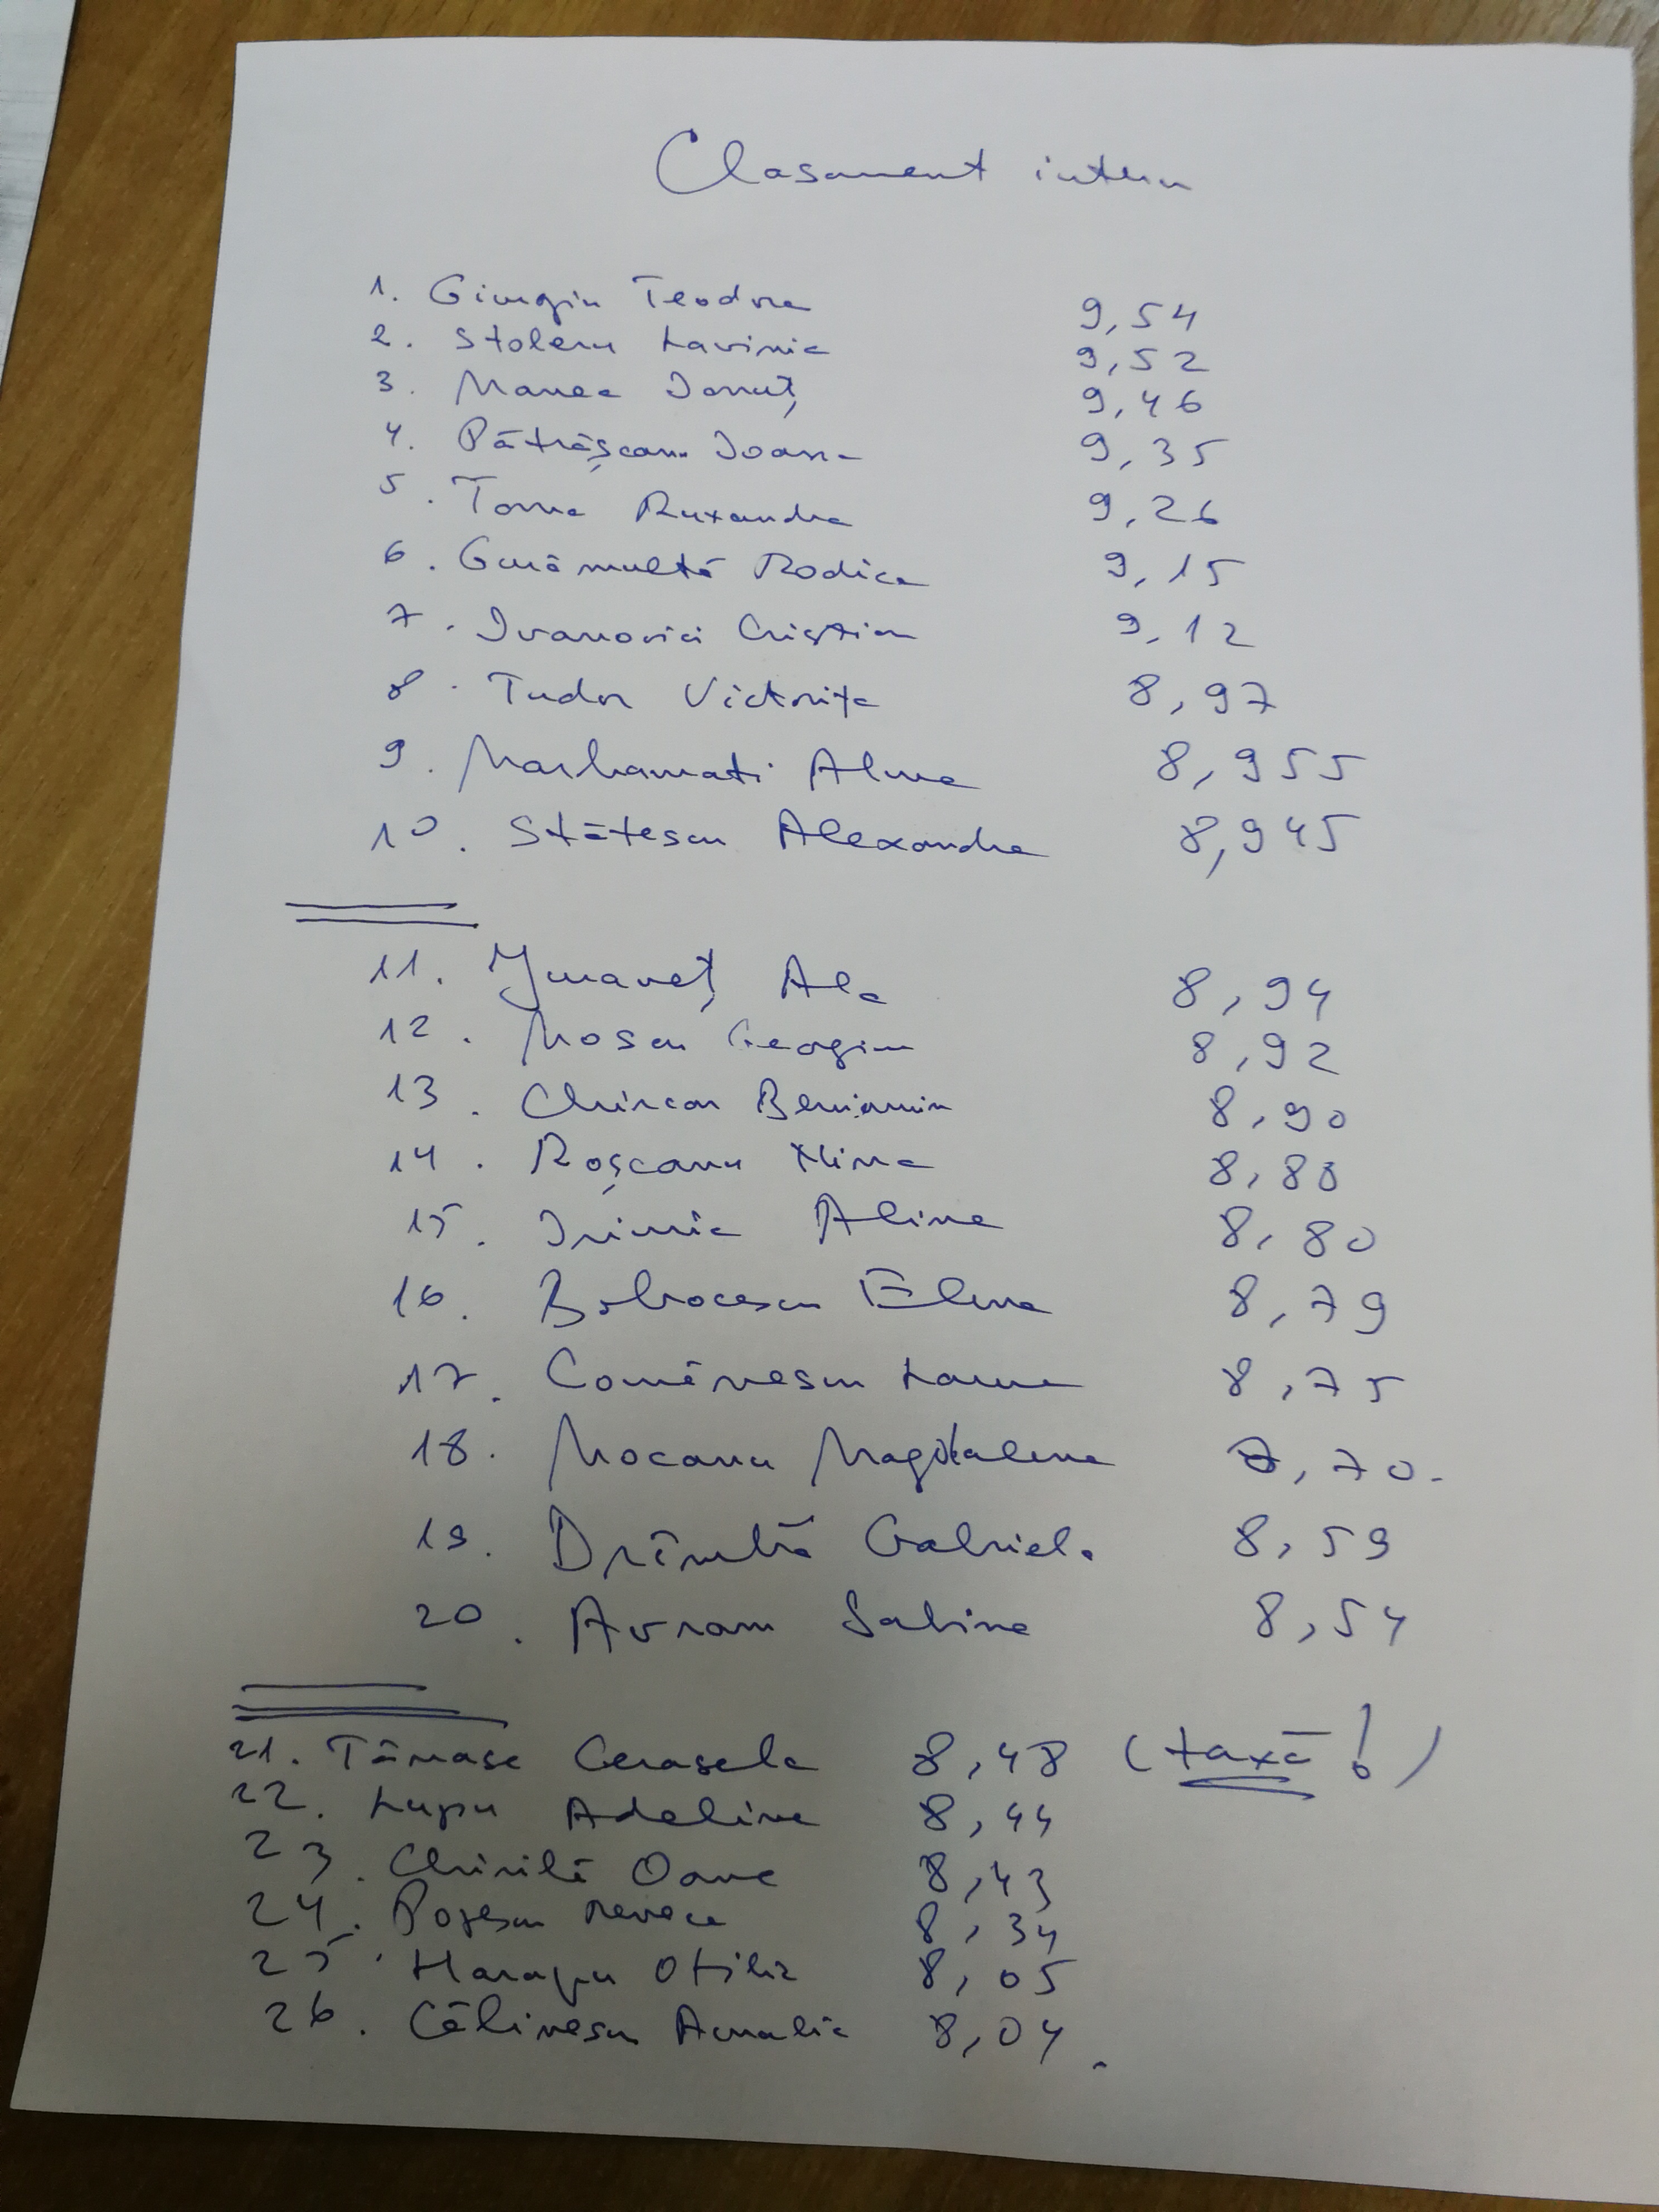 Clasament intern
1. Giurgiu Teodora 9,54
2. Stoleru Lavinia 9,52
3. Manea Ionuț 9,46
4. Pătrășcanu Ioana 9,35
5. Toma Ruxandra 9,26
6. Gurămultă Rodica 9,15
7. Ivanovici Cristian 9,12
8. Tudor Victorița 8,97
9. Marhamati Alma 8,955
10. Stătescu Alexandra 8,945
11. Ala 8,94
12. Moscu Georgiu 8,92
13. Chircan Beniamin 8,90
14. Roșcanu Mina 8,88
15. Irimia Alina 8,80
16. Bobocescu Elena 8,79
17. Comănescu Laura 8,75
18. Mocanu Magdalena 70.
19. Drîmbă Gabriela 8,59
20. Avram Sabina 8,54
21. Tănase Cerasela 8,48 (taxă!)
22. Lupu Adelina 8,44
23. Chirilă Oana 8,43
24. 8,34
25. Harapu Otilia 8,05
26. Călinescu Amalia 8,04.